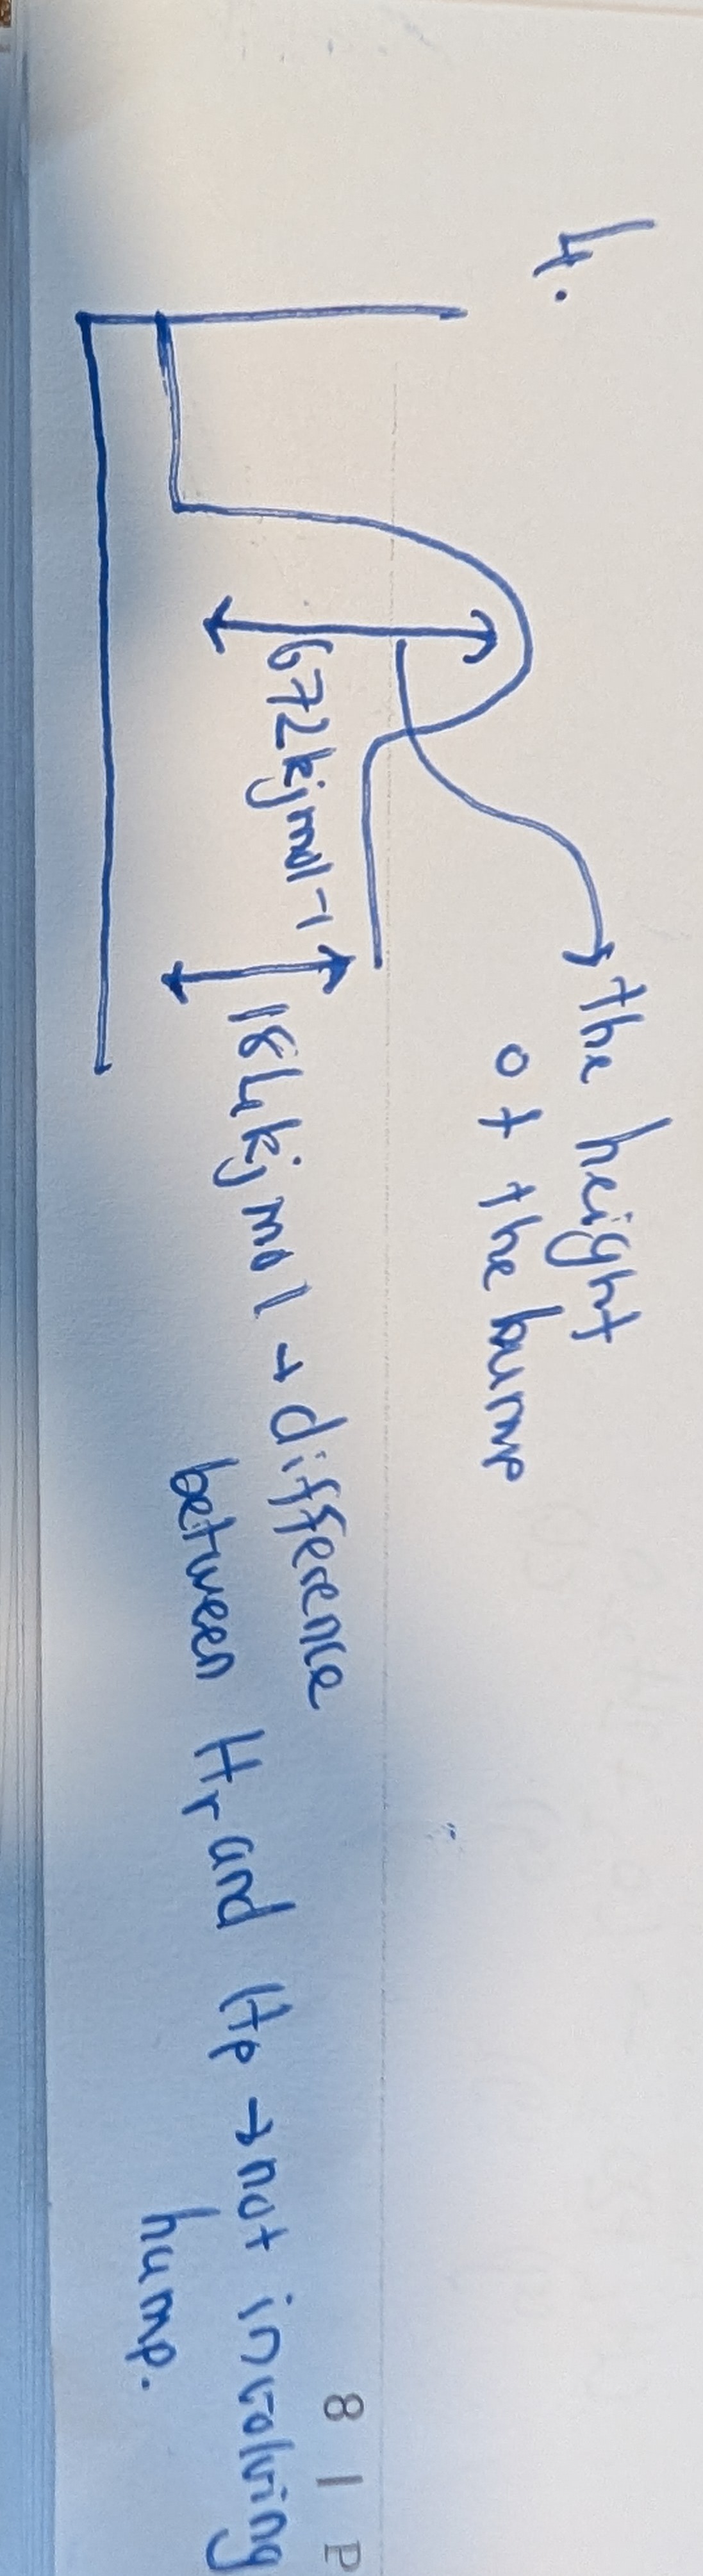 4.
the height
of the bump
672kjmol-1
184kjmol → difference
between Hr and Hp → not involving
hump.
81P